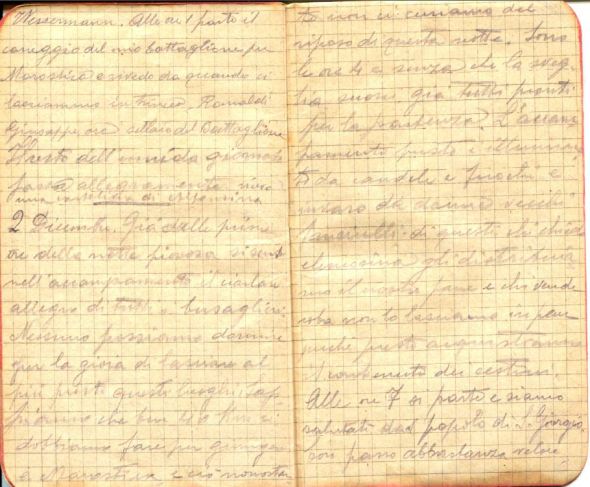 Wessermann. Alle ore 1 parte il
careggio del mio battaglione per
Marostica e rivedo da quando ci
lasciammo in Francia, Romaldi
Giuseppe ora sellaio del Battaglione
Il resto dell'umida giornata
passa allegramente
una cartolina di
2 Dicembre. Già dalle prime
ore della notte piovosa si sente
nell'accampamento il ciarlare
allegro di tutti i bersaglieri.
Nessuno possiamo dormire
per la gioia di lasciare al
più presto questi luoghi. Sap-
piamo che ben 40 Km ci
dobbiamo fare per giungere
a Marostica e ciò nonostan
te non ci curiamo del
riposo di questa notte. Sono
le ore 4 e senza che la sveg-
lia suoni già tutti pronti
per la partenza. L'accam
pamento questo è illumina
to da candele e fuochi è
invaso da donne vecchi
fanciulli: di questi chi chiede
elemosina gli distribuia
mo il nostro pane e chi vende
roba non lo lasciamo in pace
puichè presto acquistiamo
il contenuto dei cestini.
Alle ore 7 si parte e siamo
salutati dal popolo di S. Giorgio.
Con passo abbastanza veloce,